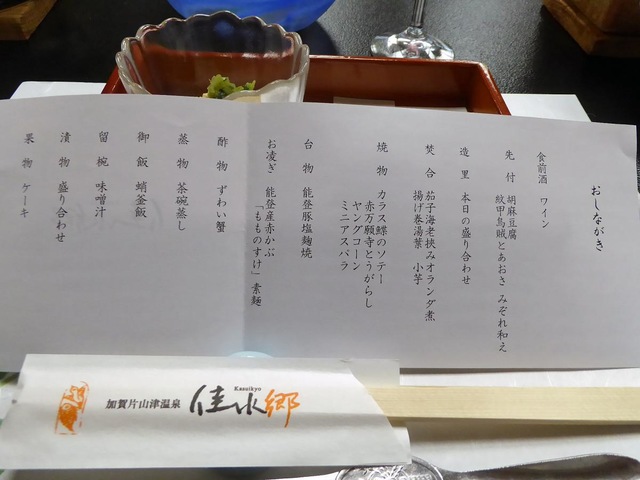 おしながき
食前酒 ワイン
先付 胡麻豆腐
紋甲烏賊とあおさ みぞれ和え
造里 本日の盛り合わせ
焚合 茄子海老挟みオランダ煮
揚げ巻湯葉 小芋
焼物 カラス鰈のソテー
赤万願寺とうがらし
ヤングコーン
ミニアスパラ
台物 能登豚塩麹焼
お凌ぎ 能登産赤かぶ
「もものすけ」素麺
酢物 ずわい蟹
蒸物 茶碗蒸し
御飯 蛸釜飯
留椀 味噌汁
漬物 盛り合わせ
果物 ケーキ
加賀片山津温泉
Kasuikyo
佳水郷